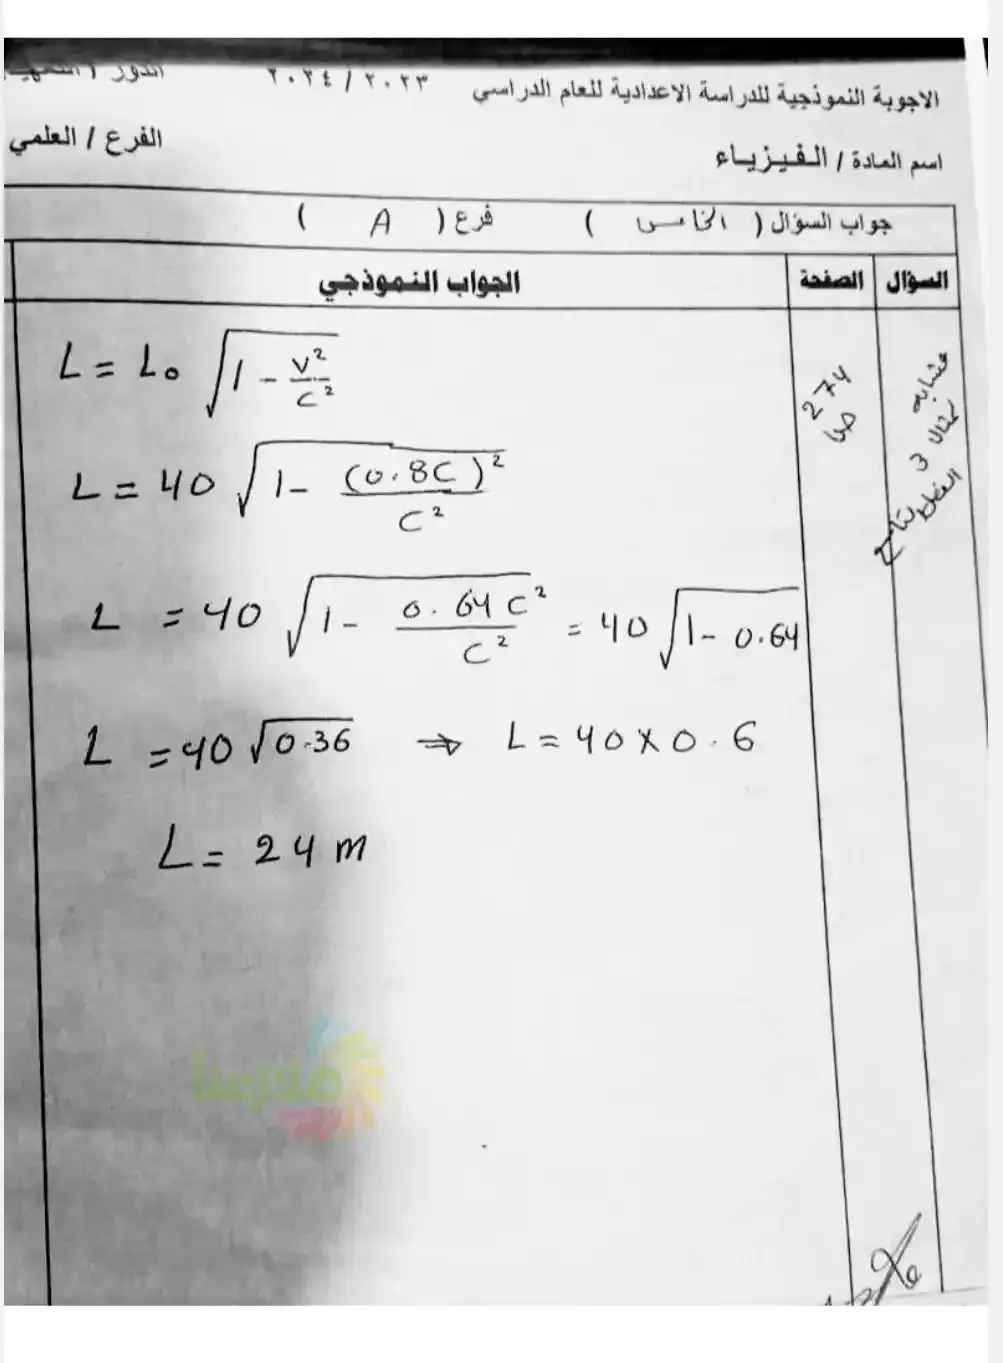 الاجوبة النموذجية للدراسة الاعدادية للعام الدراسي ٢٠٢٣ / ٢٠٢٤ الدور /
اسم المادة / الفيزياء الفرع / العلمي
جواب السؤال ( الخامس ) فرع ( A )
السؤال الصفحة الجواب النموذجي
مشابه
مثال 3
274
ص
L = L₀ √(1 - v²/c²)
L = 40 √(1 - (0.8C)²/C²)
L = 40 √(1 - 0.64 C²/C²) = 40 √(1 - 0.64)
L = 40 √0.36 ⇒ L = 40 × 0.6
L = 24 m
ملازمنا